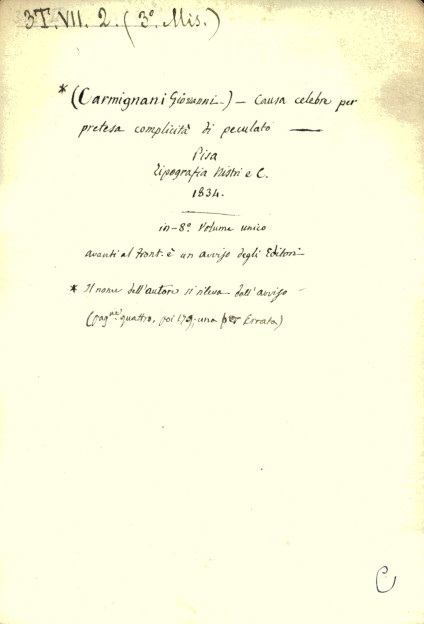 3T. VII. 2. (3º. Mis.)
* (Carmignani Giovanni.) — Causa celebre per
pretesa complicità di peculato —
Pisa
Tipografia Nistri e C.
1834.
in-8º. Volume unico
avanti al front. è un avviso degli Editori
* Il nome dell'autore si rileva dall'avviso
(pagne. quattro, poi 179, una per Errata)
C